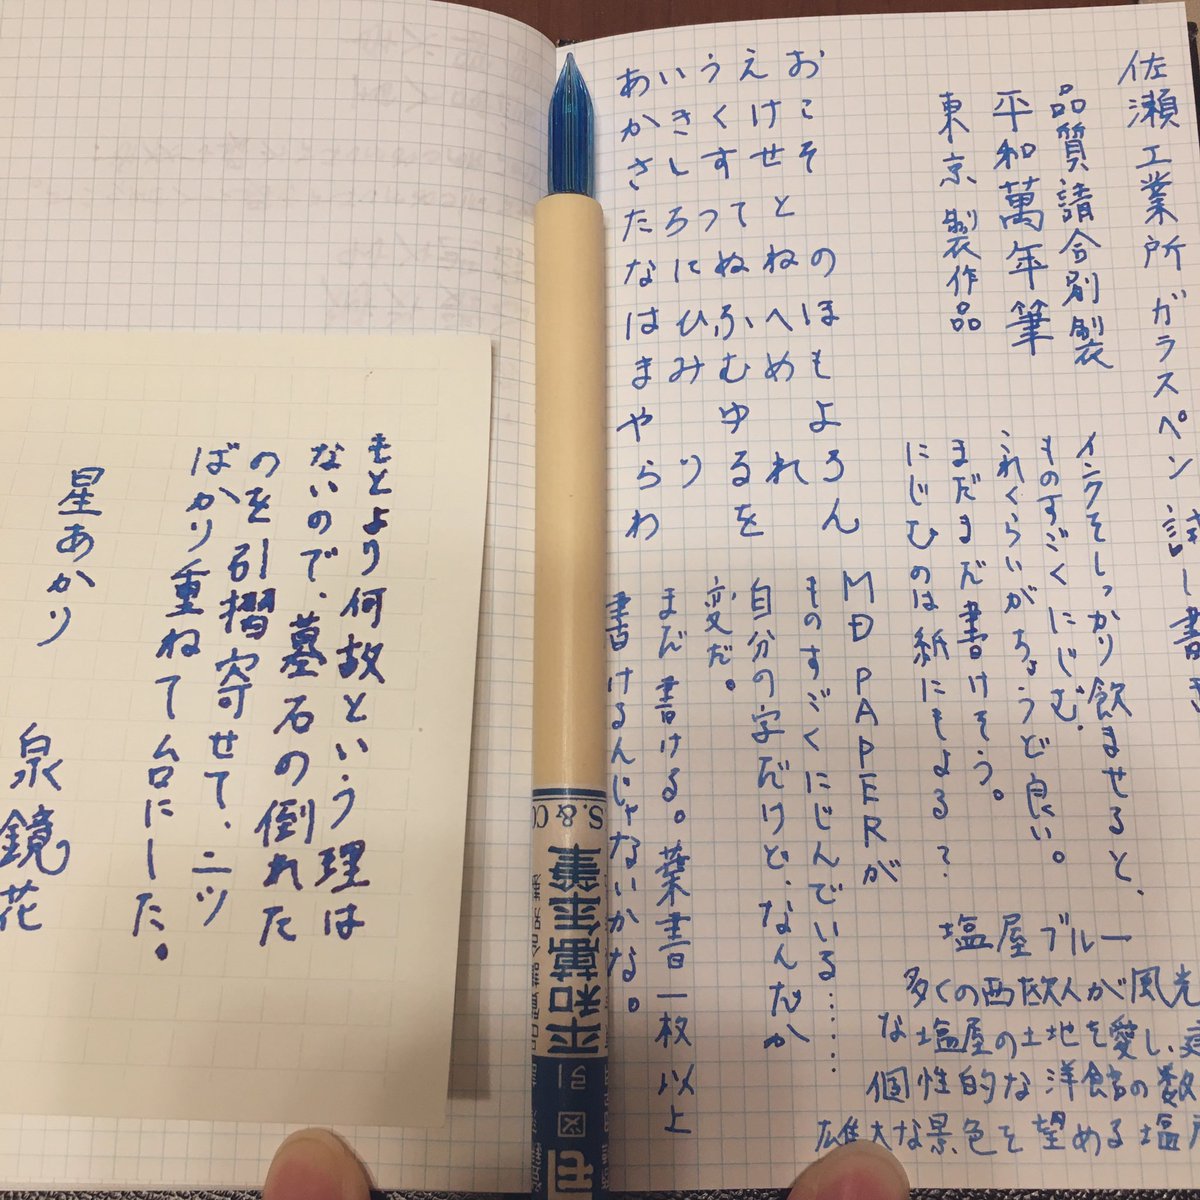 佐瀬工業所ガラスペン試し書き
品質請合別製
平和萬年筆
東京製作品
おえういあ
こけくきか
そせすしさ
とてつ ろた
のねぬにな
ほへふひは
もめむみま
よ ゆ や
ろれるりら
ん を わ
インクをしっかり飲ませると、
ものすごくにじむ。
これくらいがちょうど良い。
まだまだ書けそう。
にじむのは紙にもよる?
MD PAPERが
ものすごくにじんでいる……
自分の字だけど、なんだか
変だ。
まだ書ける。葉書一枚以上
書けるんじゃないかな。
塩屋ブルー
多くの西欧人が風光
な塩屋の土地を愛し、
個性的な洋館の数
雄大な景色を望める塩屋
もとより何故という理は
ないので、墓石の倒れた
のを引摺寄せて、二ツ
ばかり重ねて台にした。
星あかり 泉鏡花
S. & CO
平和萬年筆